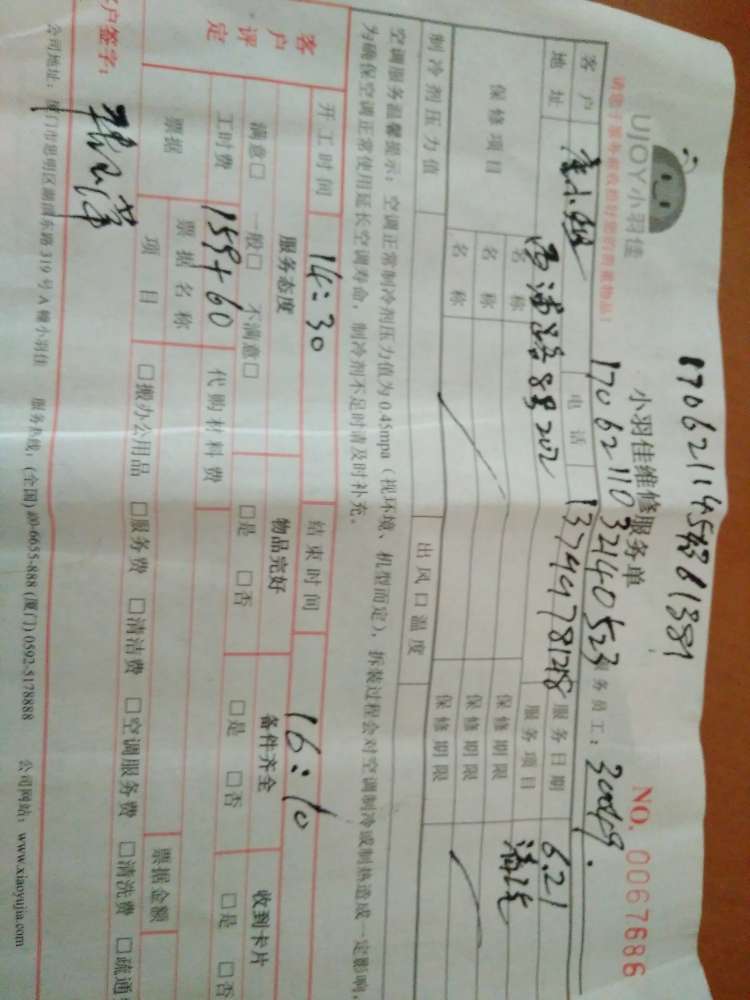 17062114548361389
UJOY小羽佳
小羽佳维修服务单
NO. 0067686
请您于服务前收拾好您的贵重物品!
17062110324140523
务员工: 300469.
客户 电话 13744778128 服务日期 6.21
地址 8号202 服务项目 清洗
保修项目 名称 保修期限
名称 保修期限
名称 保修期限
制冷剂压力值 出风口温度
空调服务温馨提示: 空调正常制冷剂压力值为0.45mpa (视环境、机型而定), 拆装过程会对空调制冷或制热造成一定影响,
为确保空调正常使用延长空调寿命, 制冷剂不足时请及时补充。
开工时间 14:30 结束时间 16:10
客户评定 服务态度 物品完好 备件齐全 收到卡片
满意□ 一般□ 不满意□ □是 □否 □是 □否 □是 □否
工时费 159+60 代购材料费
票据 票据名称 票据金额
项目 □搬办公用品 □服务费 □清洁费 □空调服务费 □清洗费 □疏通
户签字:
公司地址: 厦门市思明区湖滨东路319号A幢小羽佳 服务热线: (全国)400-6655-888 (厦门)0592-5178888 公司网站: www.xiaoyujia.com